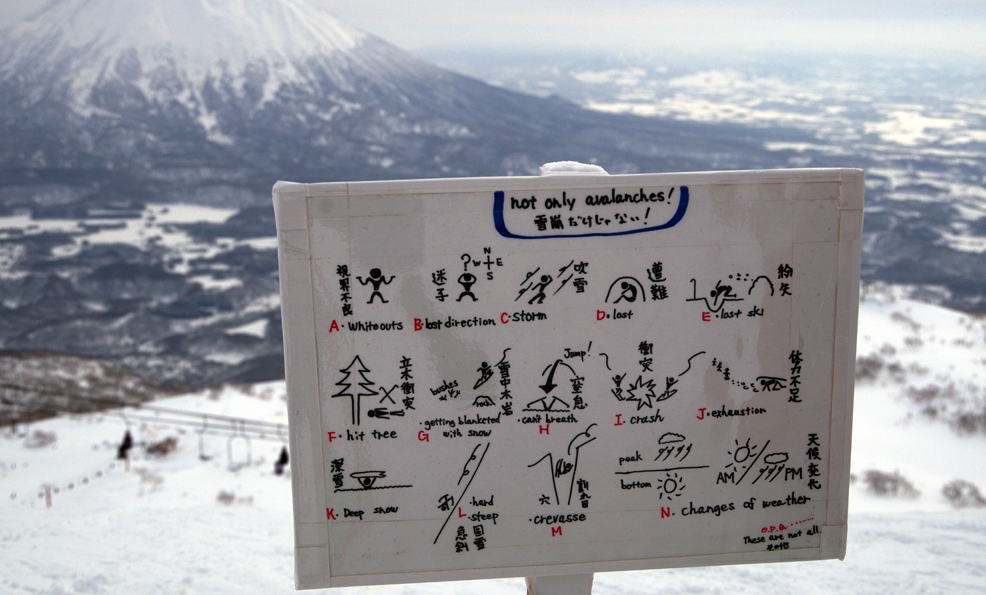 not only avalanches!
雪崩だけじゃない!
視界不良
A. Whiteouts
迷子
? N W E S
B. lost direction
吹雪
C. storm
遭難
D. lost
紛失
E. lost ski
立木衝突
F. hit tree
bushes
rock
雪中木岩
G. getting blanketed
with snow
Jump!
窒息
can't breath
H
衝突
I. crash
体力不足
J. exhaustion
深雪
K. Deep snow
L. hard
steep
急斜
固雪
穴
割れ目
crevasse
M
peak
bottom
AM
PM
天候変化
N. changes of weather
O.P.Q. ......
These are not all.
その他